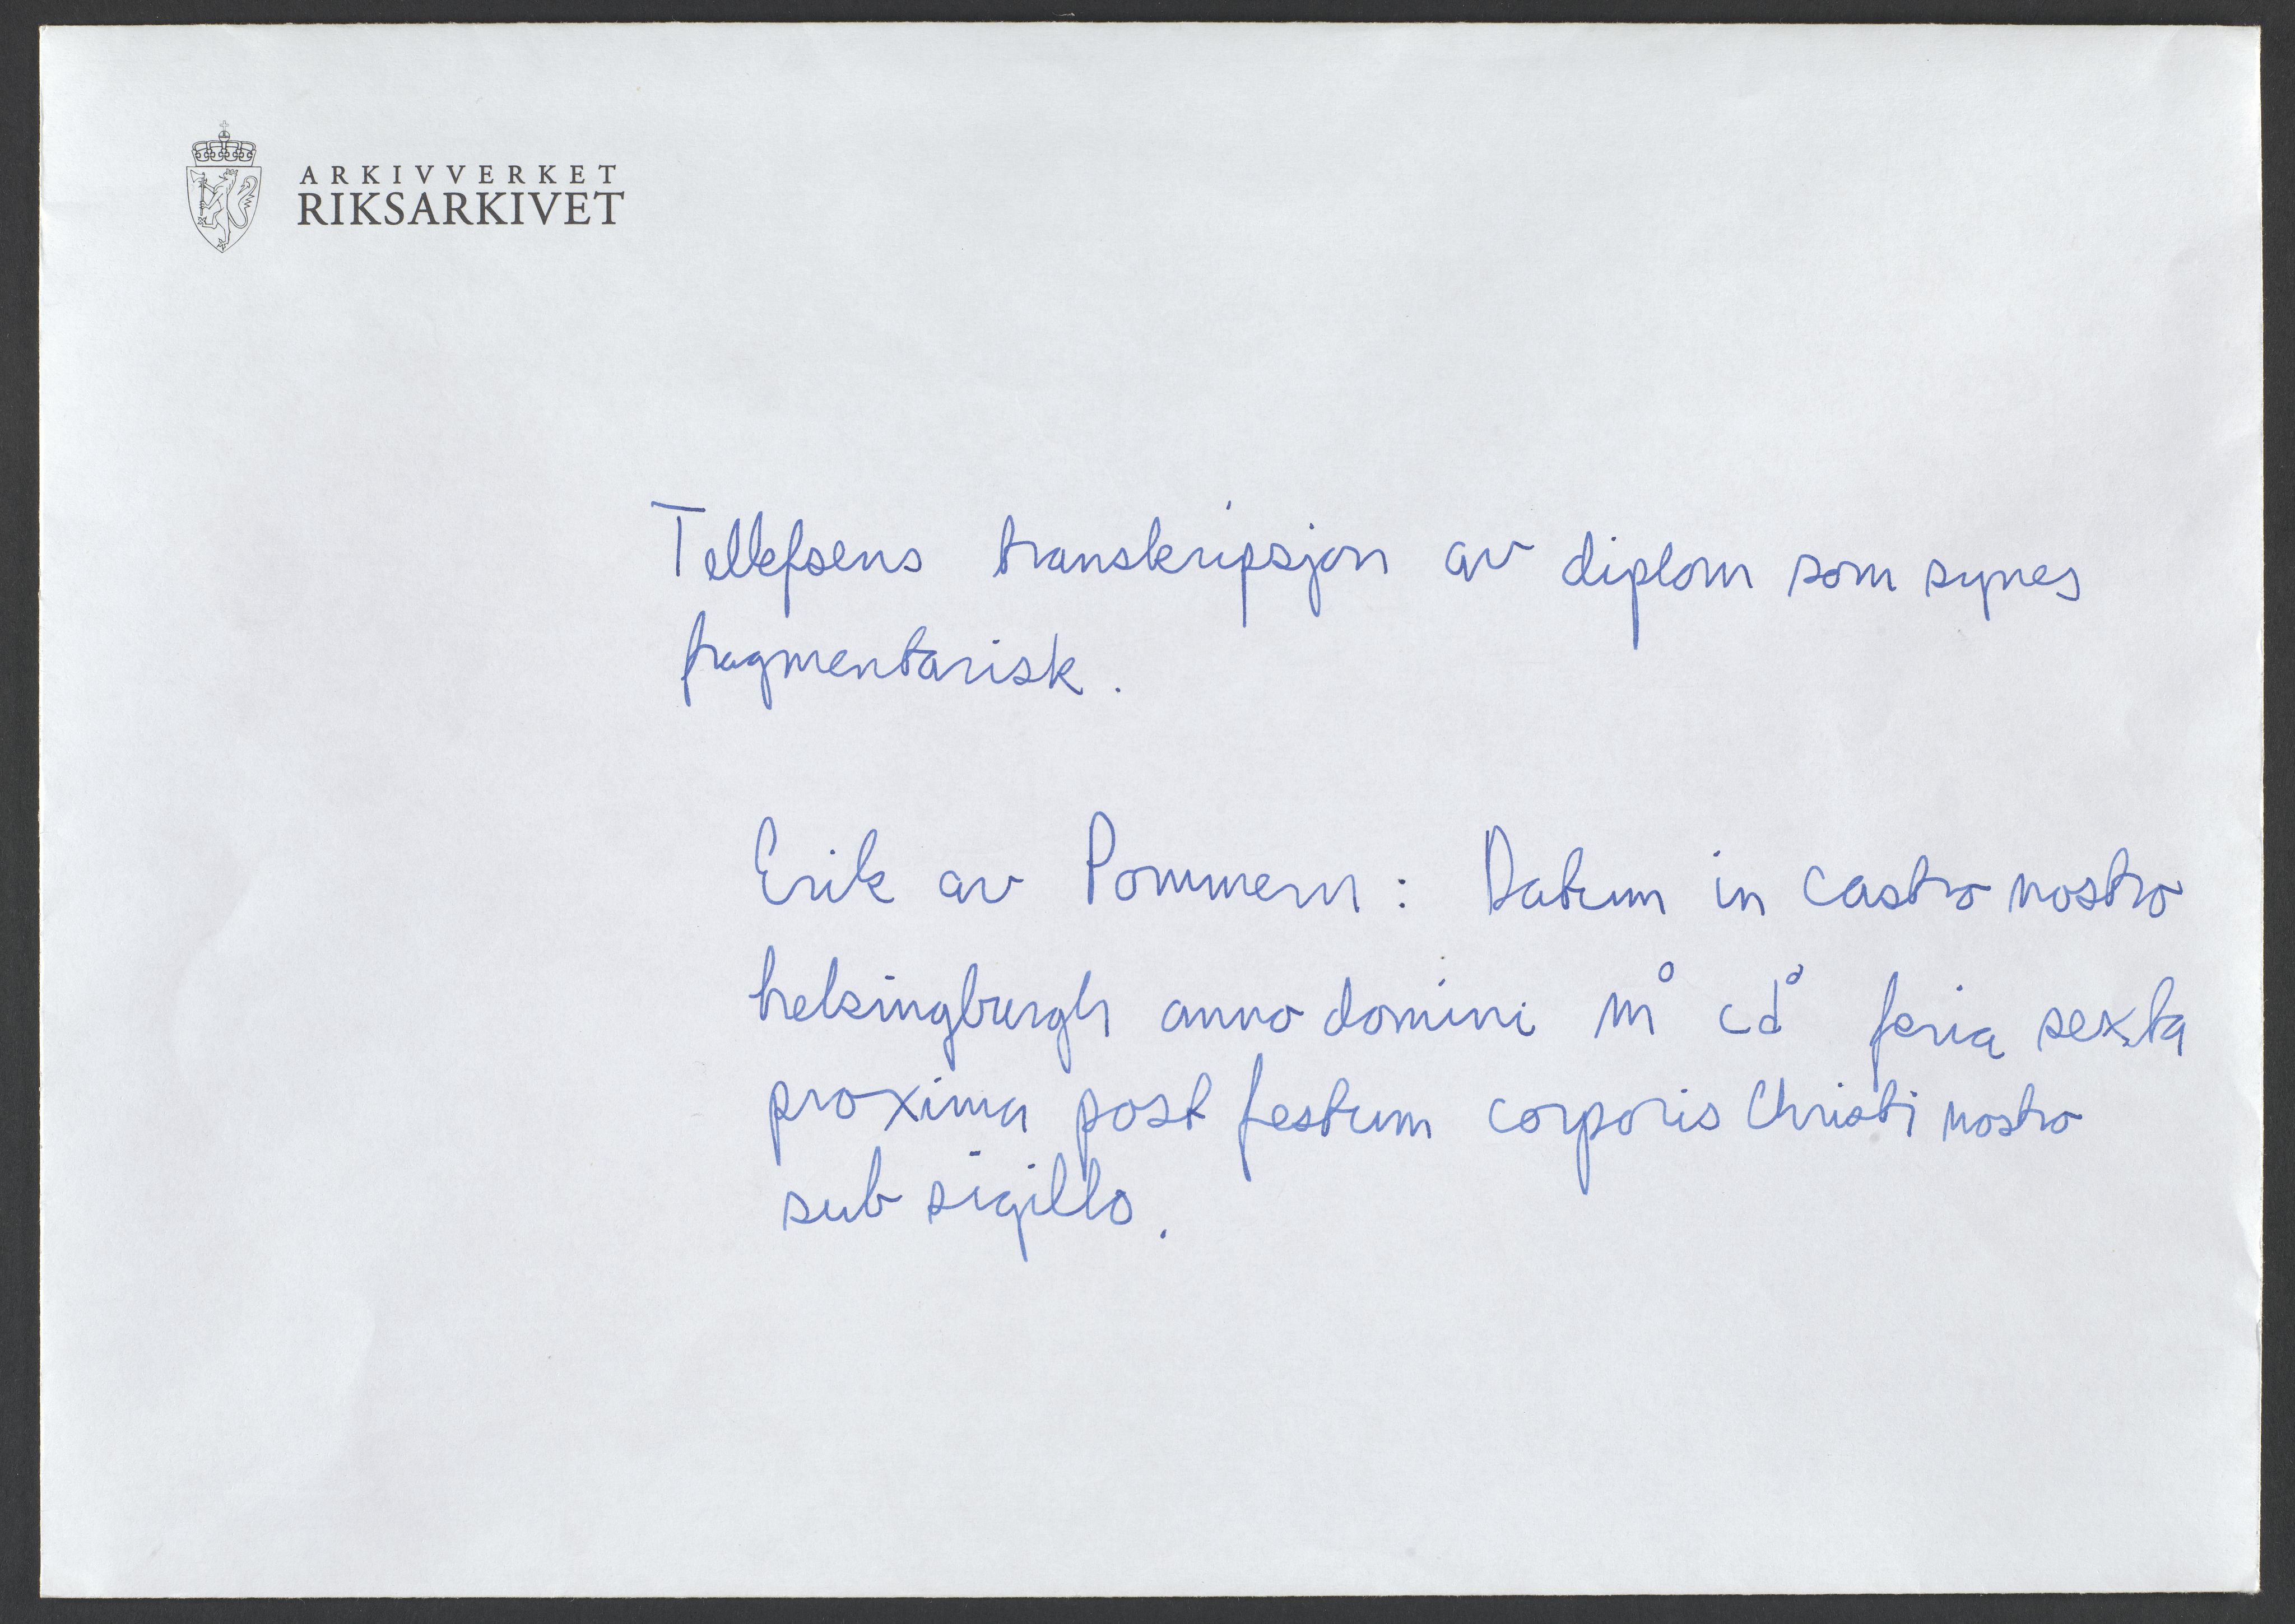 ARKIVVERKET
RIKSARKIVET
Tellefsens transkripsjon av diplom som synes
fragmentarisk.
Erik av Pommern: Datum in castro nostro
helsingburgh anno domini m° cd° feria sexta
proxima post festum corporis Christi nostro
sub sigillo.